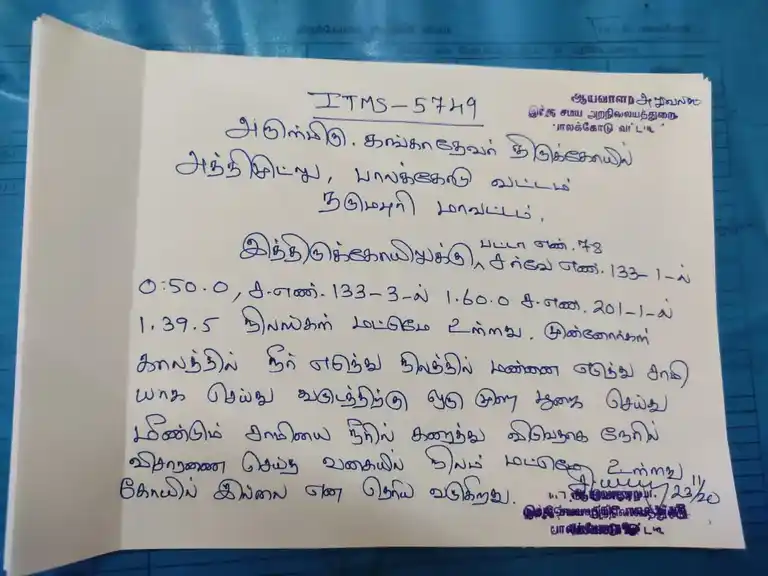 ITMS-5749
ஆய்வாளர் அலுவலகம்
இந்து சமய அறநிலையத்துறை
பாலக்கோடு வட்டம்
அருள்மிகு. கங்காதேவர் திருக்கோயில்
அத்திமுட்லு, பாலக்கோடு வட்டம்
தருமபுரி மாவட்டம்.
பட்டா எண். 78
இத்திருக்கோயிலுக்கு, சர்வே எண். 133-1-ல்
0.50.0, ச.எண். 133-3-ல் 1.60.0 ச.எண். 201-1-ல்
1.39.5 நிலங்கள் மட்டுமே உள்ளது. முன்னோர்கள்
காலத்தில் நீர் எடுத்து நிலத்தில் மண்ணை எடுத்து சாமி
யாக செய்து வருடத்திற்கு ஒரு முறை பூஜை செய்து
மீண்டும் சாமியை நீரில் கரைத்து விடுவதாக நேரில்
விசாரணை செய்த வகையில் நிலம் மட்டுமே உள்ளது
கோயில் இல்லை என தெரிய வருகிறது.
23/11/20
பாலக்கோடு